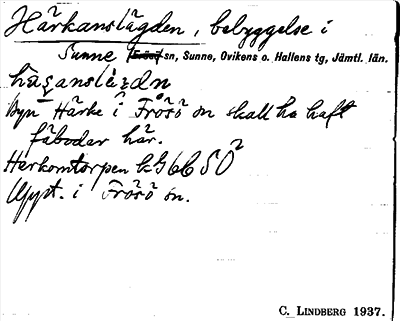 Härkanslägden, bebyggelse i
Sunne (Frösö) sn, Sunne, Ovikens o. Hallens tg, Jämtl. län.
Byn Härke i Frösö sn skall ha haft
fäbodar här.
Härkomtorpen kG66 SO²
Uppt. i Frösö sn.
C. LINDBERG 1937.